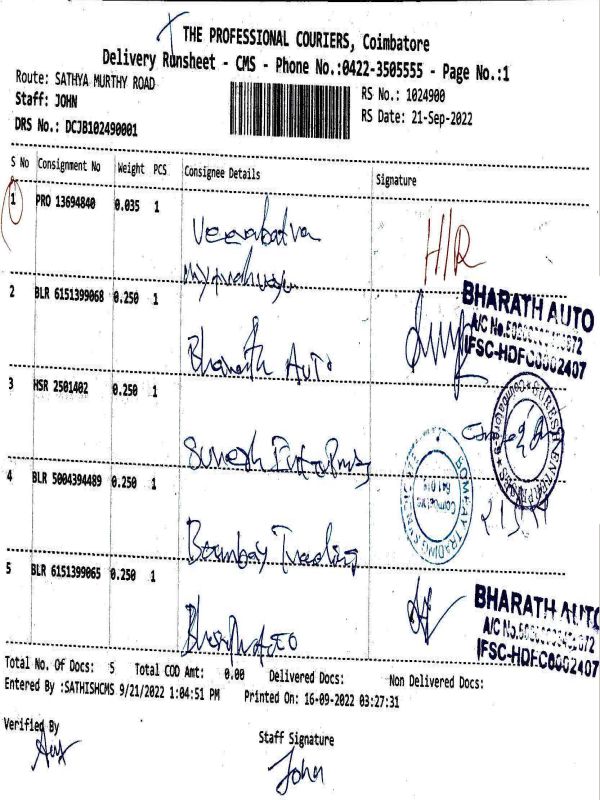 THE PROFESSIONAL COURIERS, Coimbatore
Delivery Runsheet - CMS - Phone No.:0422-3505555 - Page No.:1
Route: SATHYA MURTHY ROAD
Staff: JOHN
RS No.: 1024900
RS Date: 21-Sep-2022
DRS No.: DCJB102490001
S No Consignment No Weight PCS Consignee Details Signature
1 PRO 13694840 0.035 1
H/R
2 BLR 6151399068 0.250 1 Bharath Auto
BHARATH AUTO
A/C No.
IFSC-HDFC0002407
3 HSR 2501402 0.250 1 Suresh
SURESH ENTERPRISES
Coimbatore
4 BLR 5004394489 0.250 1 Bombay Trading
BOMBAY TRADING
Coimbatore
5 BLR 6151399065 0.250 1
BHARATH AUTO
A/C No.
IFSC-HDFC0002407
Total No. Of Docs: 5 Total COD Amt: 0.00 Delivered Docs: Non Delivered Docs:
Entered By :SATHISHCMS 9/21/2022 1:04:51 PM Printed On: 16-09-2022 03:27:31
Verified By
Staff Signature
John